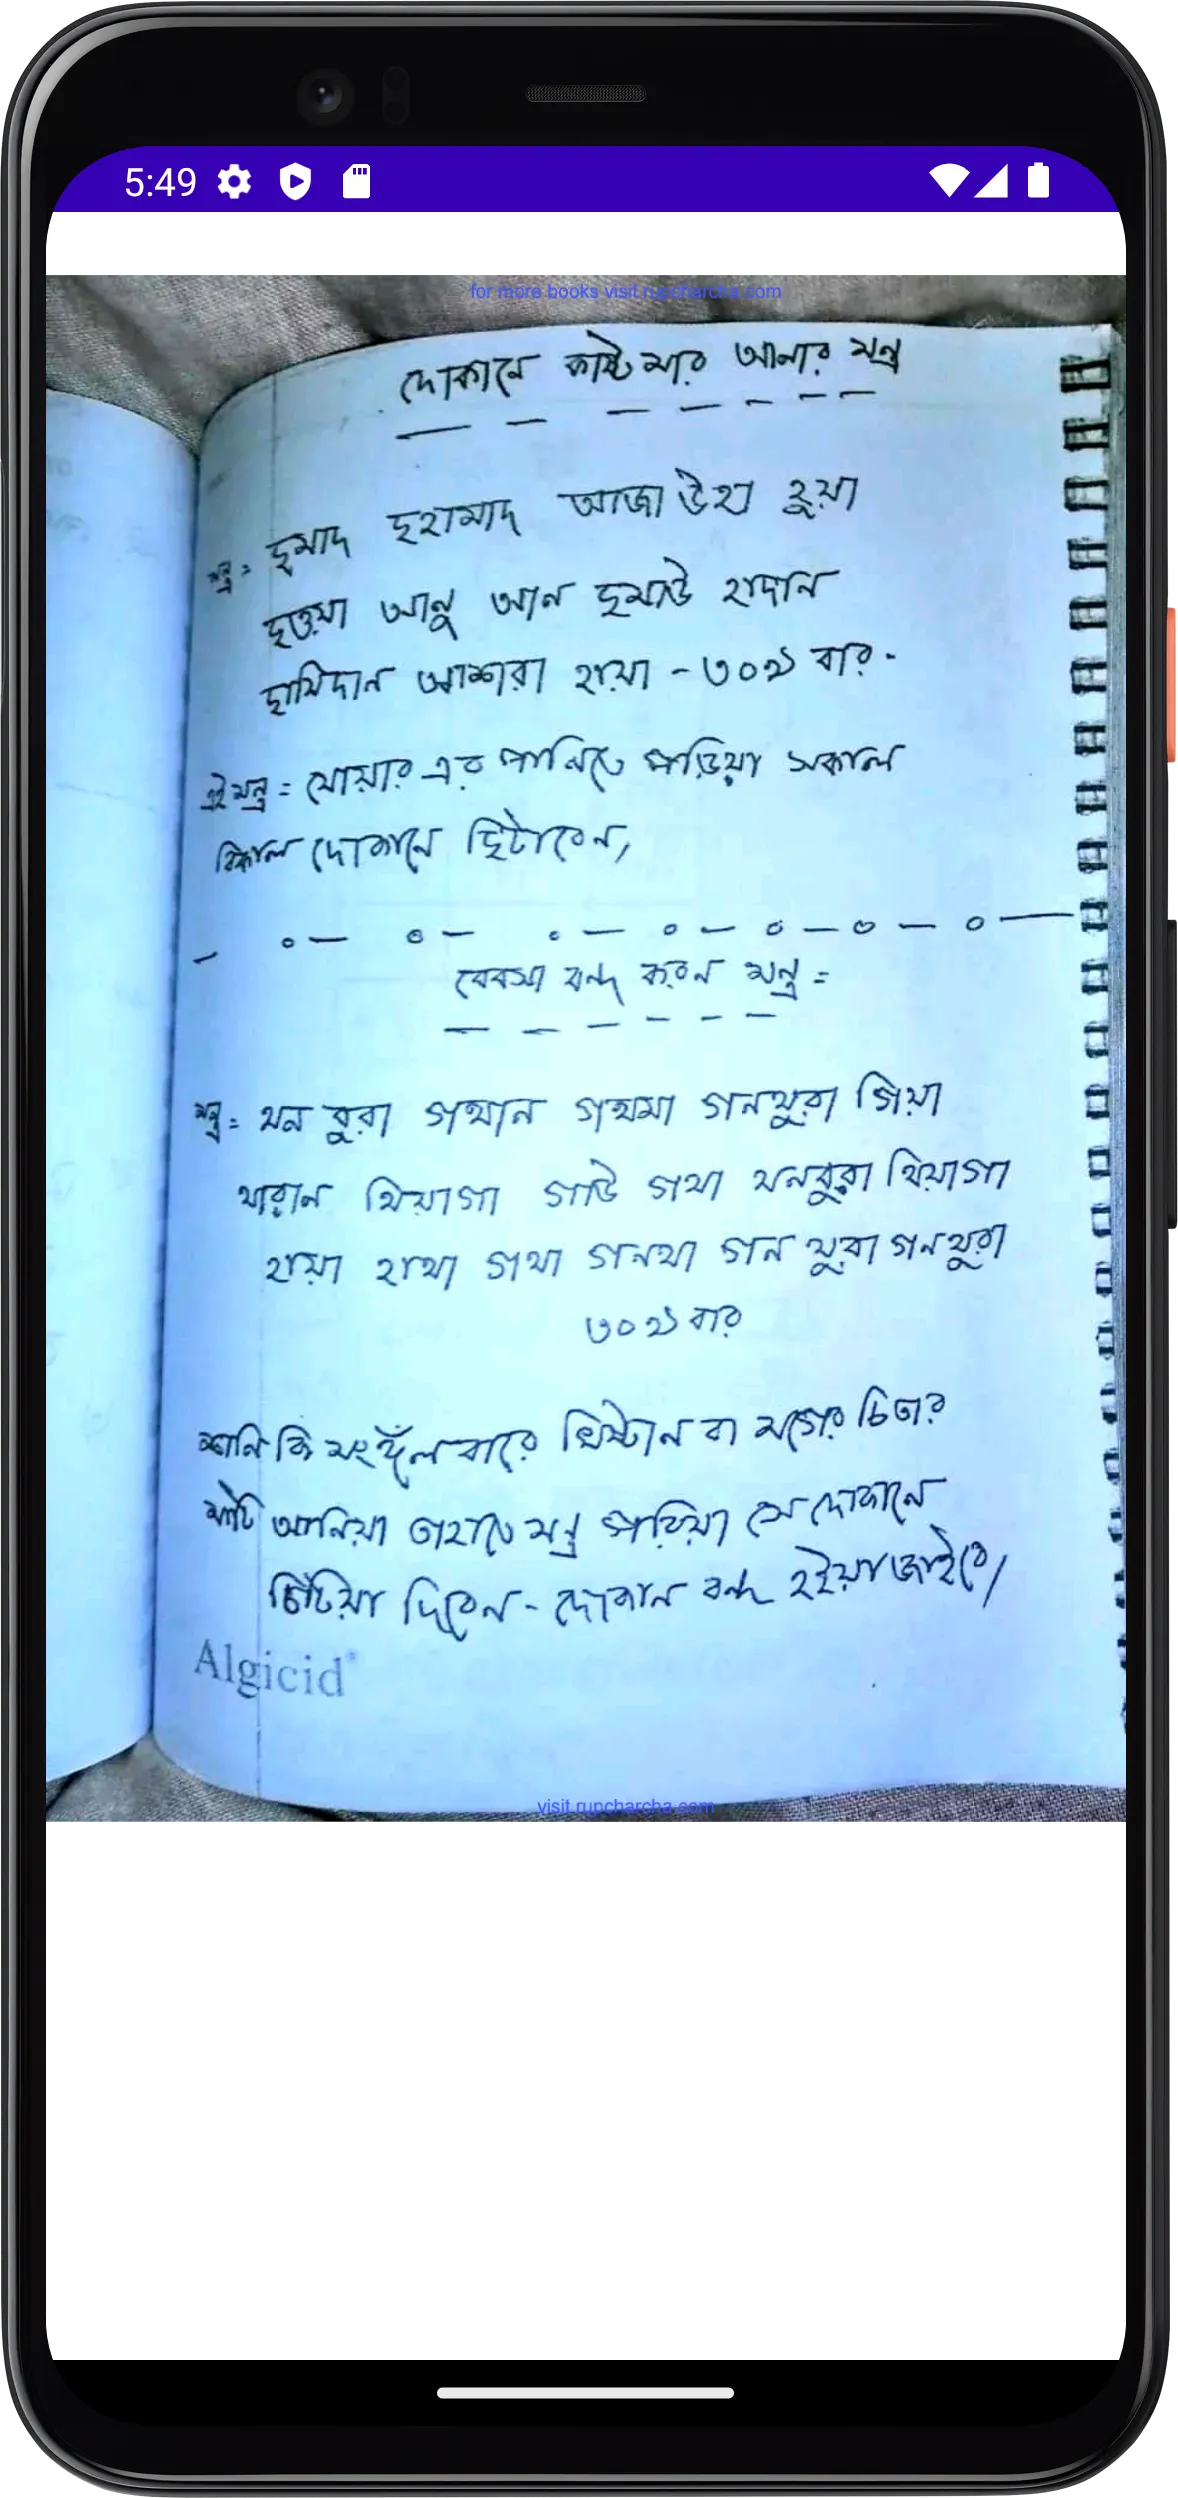 5:49
for more books visit rupcharcha.com
দোকানে কাষ্টমার আনার মন্ত্র
মন্ত্র = হুমাদ হুহামাদ আজা উহা হুয়া
হুওয়া আনু আন হুমাউ হাদান
হামিদান আশরা হায়া - ৩০১ বার.
এই মন্ত্র = যোয়ার এর পানিতে পড়িয়া সকাল
বিকাল দোকানে ছিটাবেন,
বেবসা বন্দ করন মন্ত্র =
মন্ত্র = থন থুরা গাথান গাথমা গনথুরা গিয়া
থারান থিয়াগা গাউ গাথা থনথুরা থিয়াগা
হায়া হাথা গাথা গানথা গান থুরা গনথুরা
৩০১ বার
শনি কি মংঙ্গলবারে খিষ্টান বা মগের চিতার
মাটি আনিয়া তাহাতে মন্ত্র পড়িয়া সে দোকানে
ছিটিয়া দিবেন - দোকান বন্দ হইয়া জাইবে/
Algicid
visit rupcharcha.com